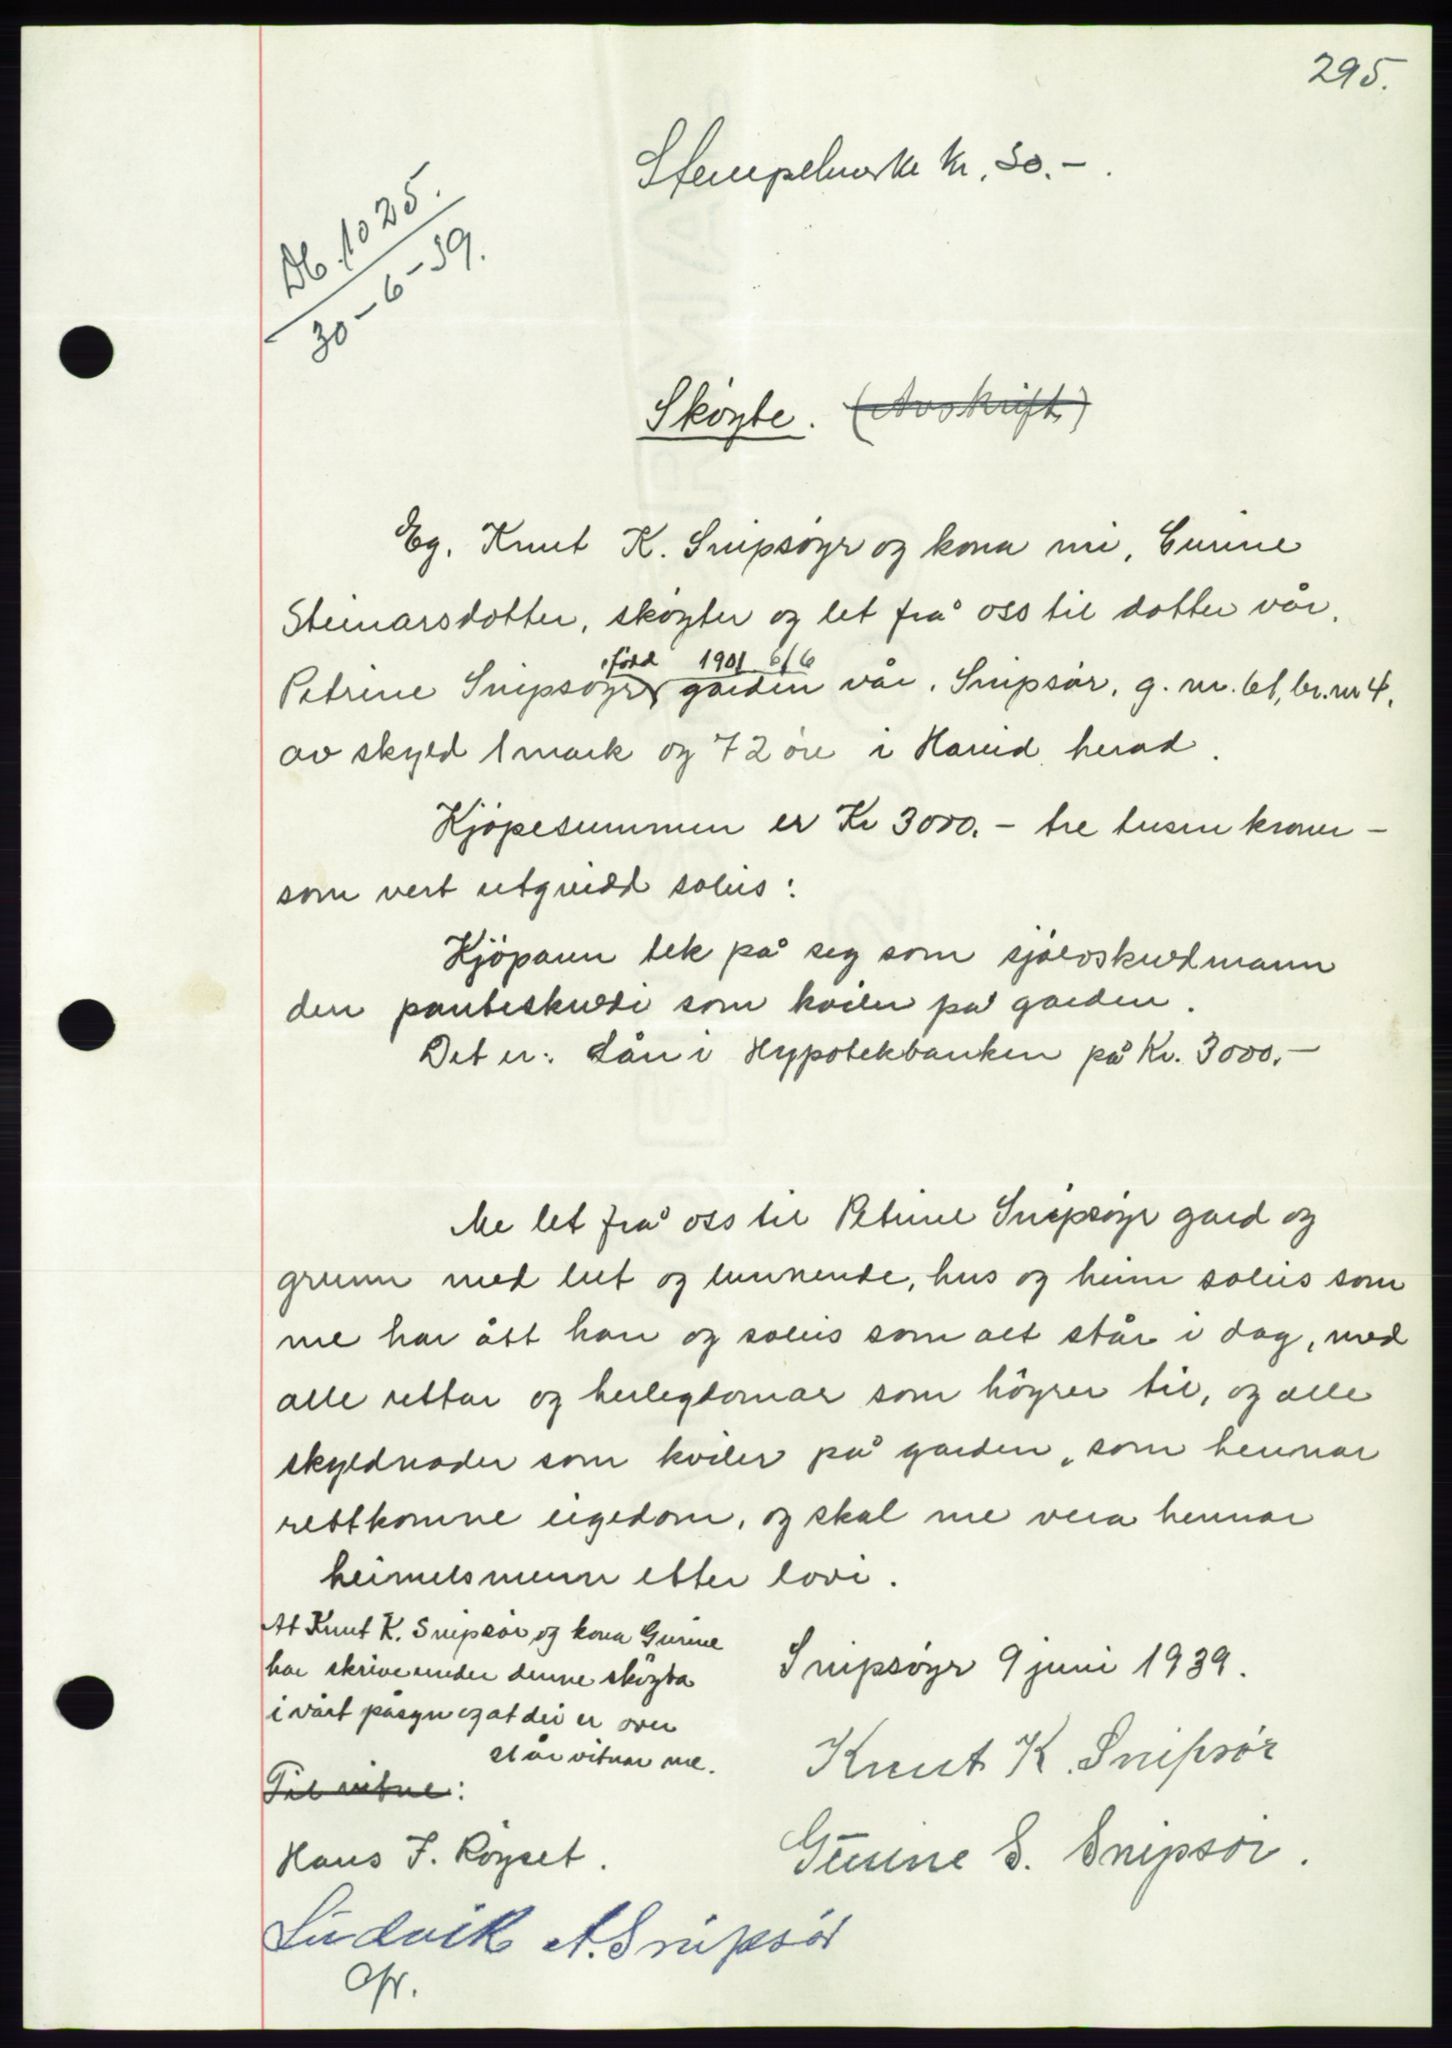 295.
Stempelmerke kr. 30.-
Db. 1025.
30-6-39.
Skøyte. (Avskrift)
Eg, Knut K. Snipsøyr og kona mi, Gurine
Steinarsdotter, skøyter og let frå oss til dotter vår,
född 1901 6/6
Petrine Snipsøyr garden vår, Snipsør, g. nr. 61, br. nr 4,
av skyld 1 mark og 72 öre i Hareid herad.
Kjöpesummen er Kr 3000.- tre tusen kroner -
som vert utgreidd soleis:
Kjöparen tek på seg som sjölvskuldmann
den panteskuldi som kviler på garden.
Det er: Lån i Hypotekbanken på Kr. 3000.-
Me let frå oss til Petrine Snipsøyr gard og
grunn med lut og lunnende, hus og heim soleis som
me har ått han og soleis som alt står i dag, med
alle rettar og herlegdomar som höyrer til, og alle
skyldnader som kviler på garden, som hennar
rettkomne eigedom, og skal me vera hennar
heimelsmenn etter lovi.
At Knut K. Snipsör og kona Gurine
har skrive under denne sköyta
i vårt påsyn og at dei er over
21 år vitnar me.
Til vitne:
Snipsøyr 9 juni 1939.
Knut K. Snipsör
Gurine S. Snipsör.
Hans F. Röyset.
Ludvik A. Snipsör